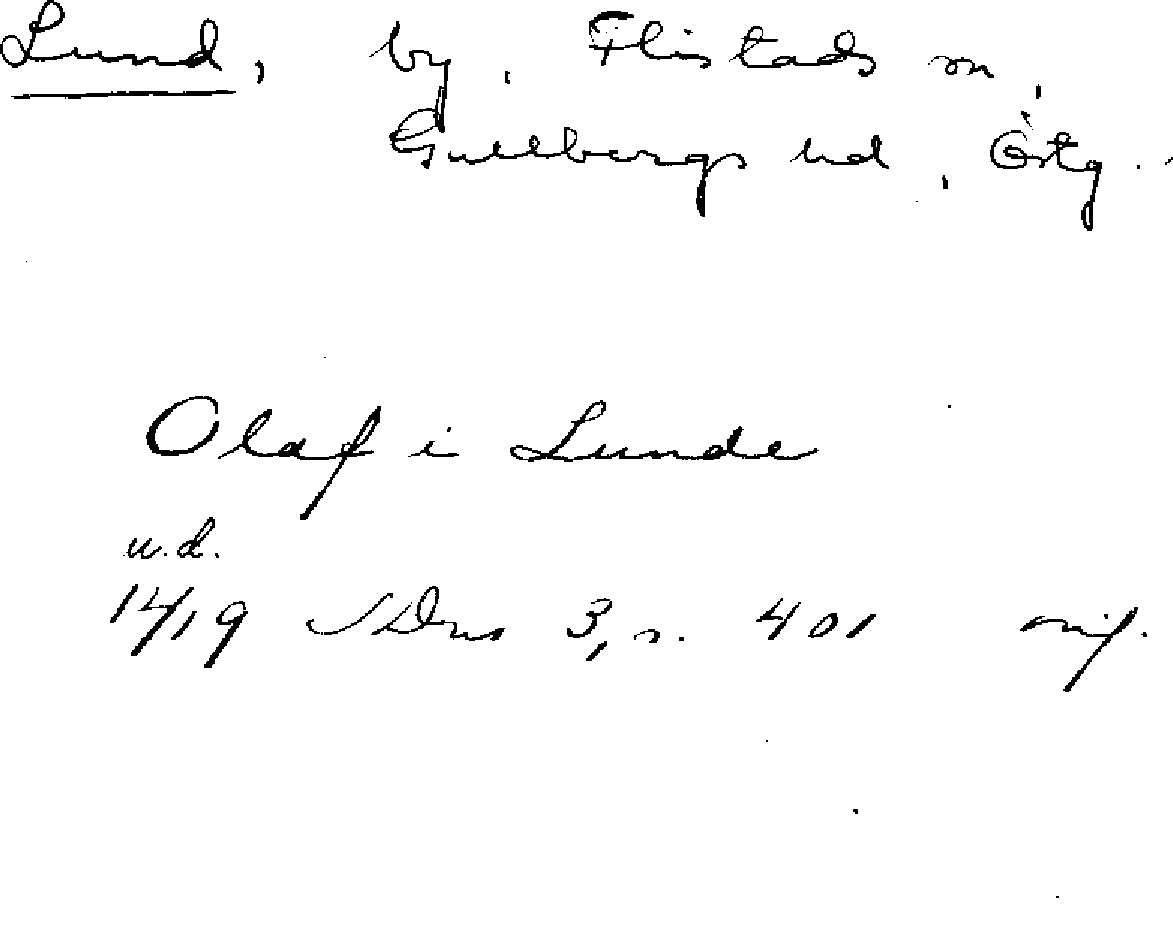 Lund, by, Flistads sn,
Gullbergs hd, Östg.
Olaf i Lunde
u.d.
14/19 SDns 3, s. 401